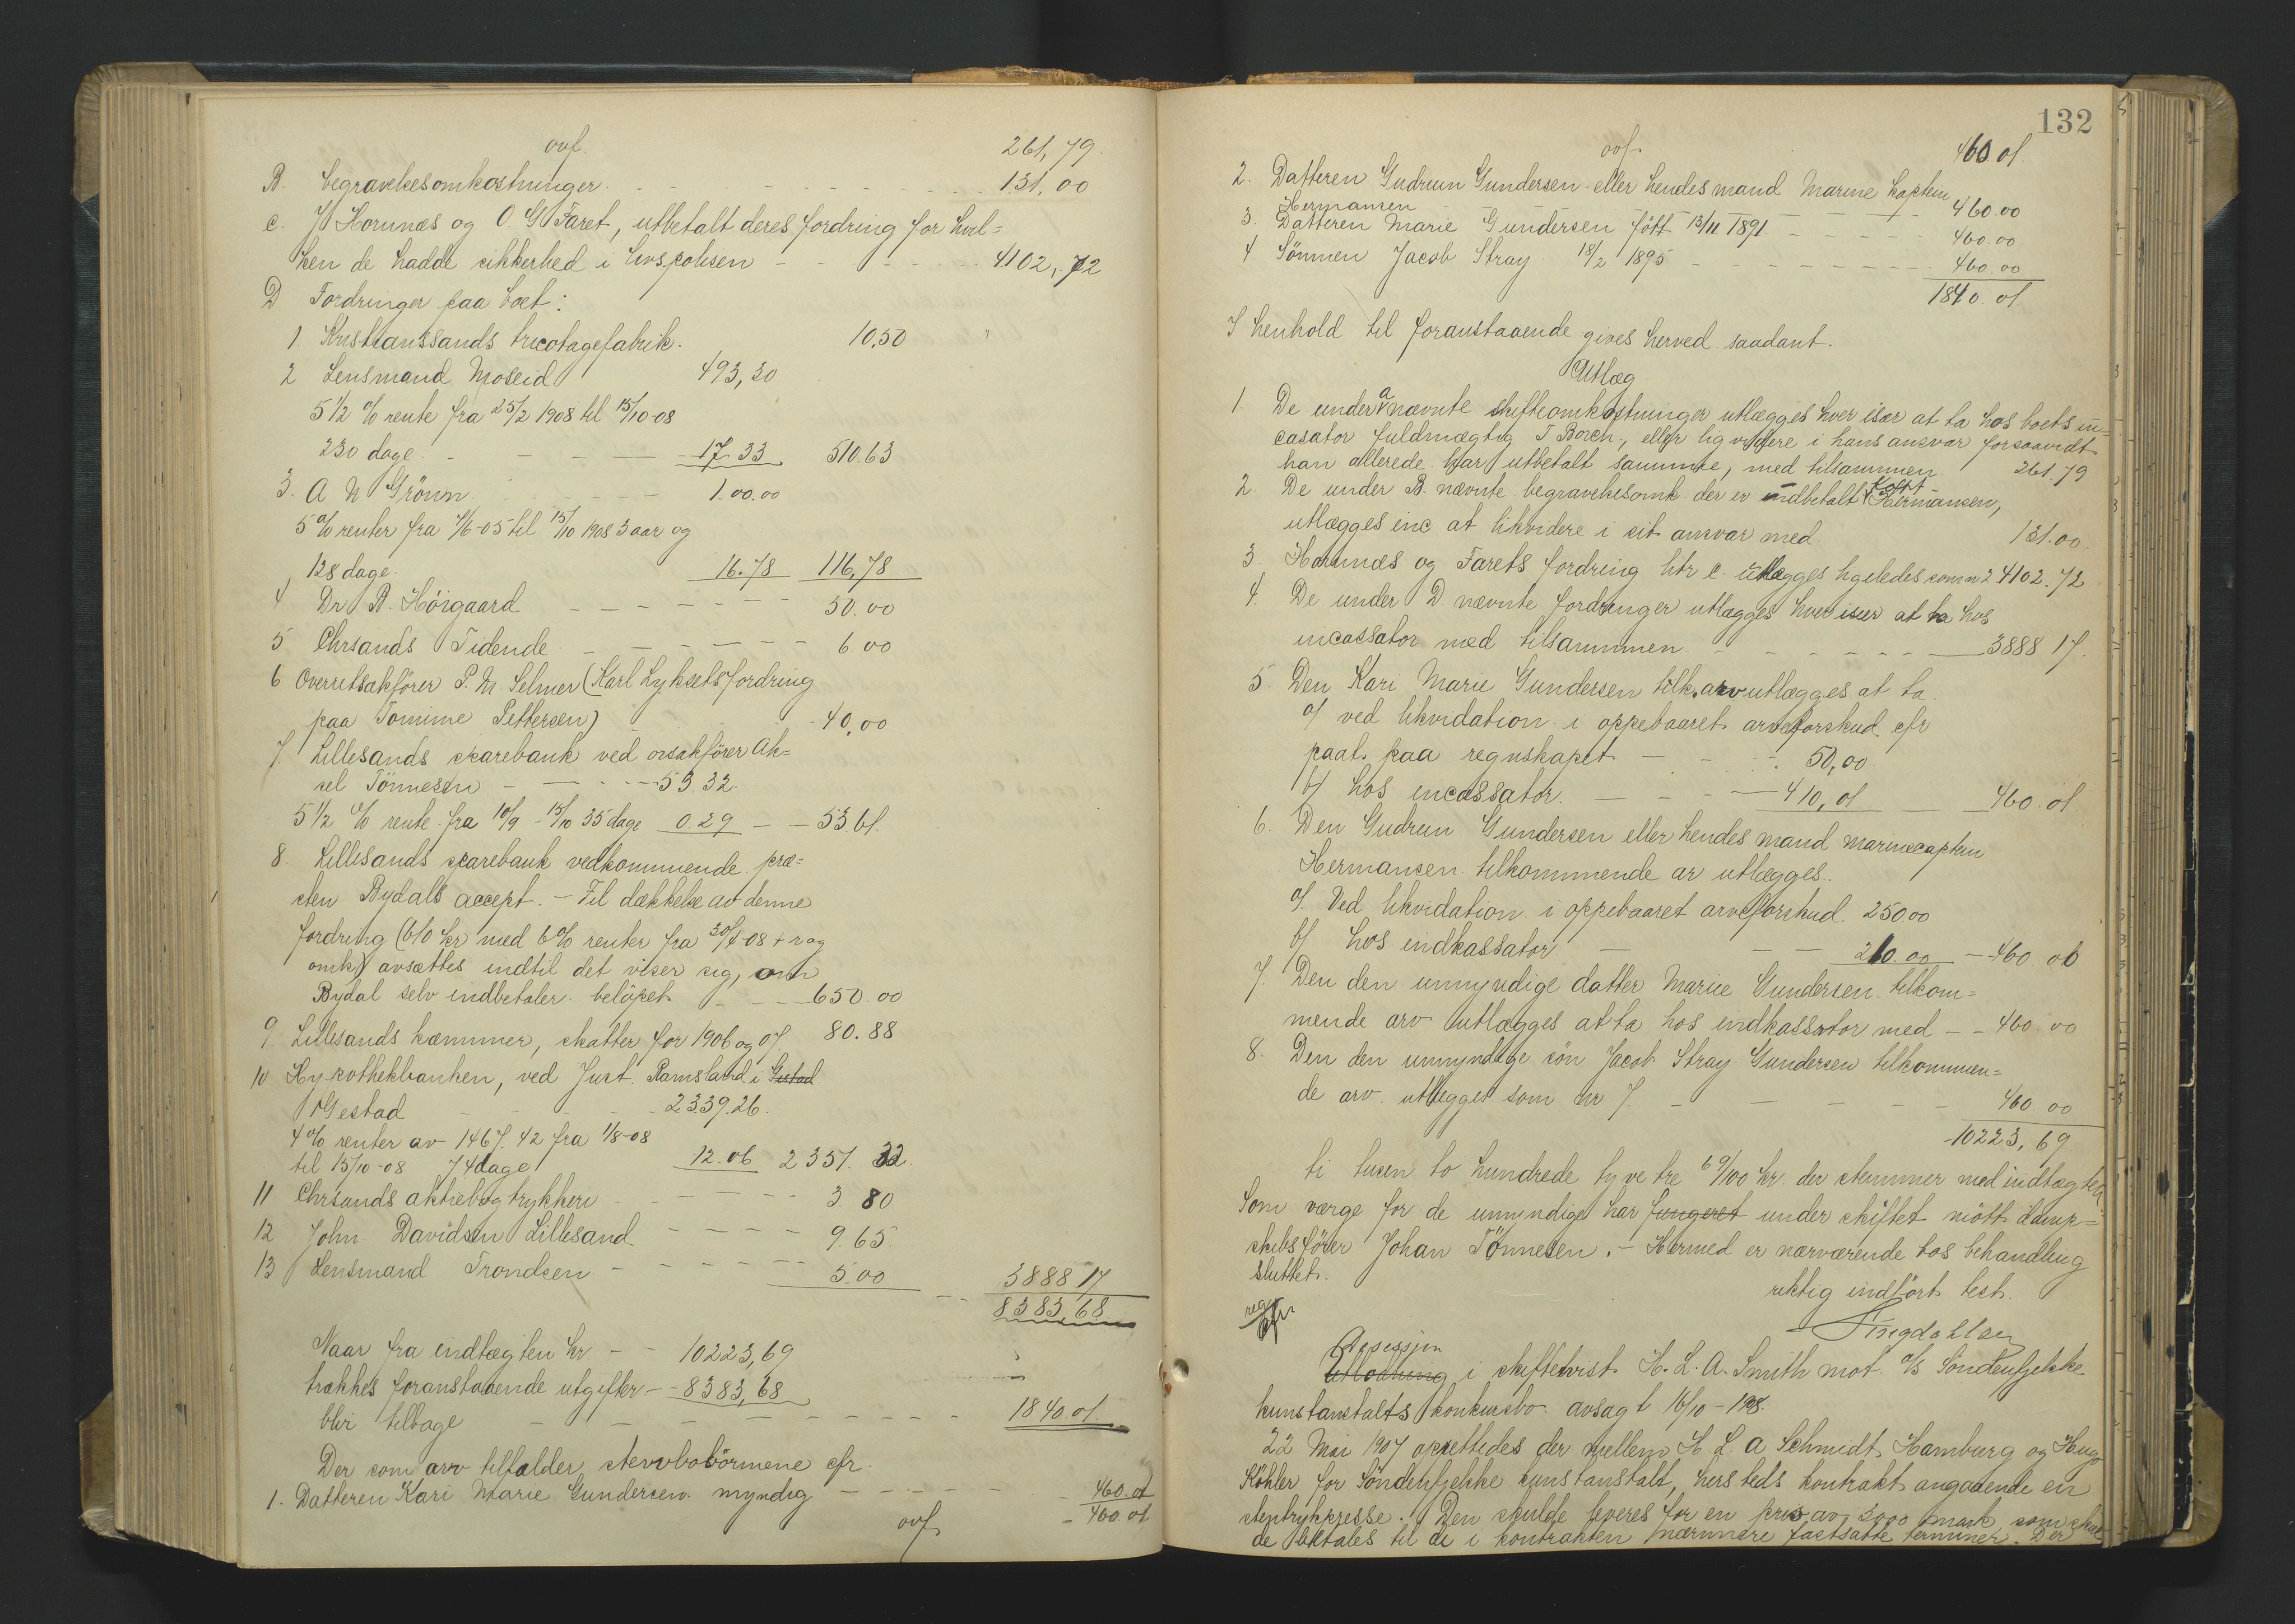 ovf. 261,79.
B. begravelsesomkostninger. 131,00
c. J Hornnæs og O G Faret, utbetalt deres fordring for hvil=
ken de hadde sikkerhed i livspolisen 4102,72
D Fordringer paa boet:
1 Kristianssands tricotagefabrik. 10,50
2 Lensmand Moseid 493,30
5 1/2 % rente fra 25/2 1908 til 15/10-08
230 dage 17.33 510.63
3. A N Grönn 100.00
5 % renter fra 7/6-05 til 15/10 1908 3 aar og
128 dage. 16.78 116,78
4 Dr B. Höigaard 50.00
5 Chrsands Tidende 6.00
6 Overretsakförer P. M Selmer (Karl Lyksets fordring
paa Tomine Pettersen) 40,00
7. Lillesands sparebank ved orsakförer Ak=
sel Tönnesen 53 32.
5 1/2 % rente fra 10/9 - 15/10 35 dage 0.29 53 61.
8. Lillesands sparebank vedkommende præ=
sten Bydals accept. - Til dækkelse av denne
fordring (610 kr med 6% renter fra 30/4-08 + r og
omk) avsættes indtil det viser sig, om
Bydal selv indbetaler belöpet 650.00
9. Lillesands kæmner, skatter for 1906 og 07. 80.88
10 Hypothekbanken, ved Just. Ramsland i Gestad
Gestad 2339.26.
4% renter av 1467.42 fra 1/8-08
til 15/10-08 74 dage 12.06 2351.32
11 Chrsands aktiebogtrykkeri 3.80
12 John Davidsen Lillesand 9.65
13 Lensmand Trondsen 5.00 3888 17
8383,68
Naar fra indtægten kr 10223,69
trækkes foranstaaende utgifter 8383,68
blir tilbage 1840.01
Der som arv tilfalder stervbobörnene cfr.
1. Datteren Kari Marie Gundersen myndig 460.01
ovf. 460 01
132
ovf. 460 01
2. Datteren Gudrun Gundersen eller hendes mand Marine kaptein
Hermansen 460.00
3. Datteren Marie Gundersen fött 13/11 1891 460.00
4 Sönnen Jacob Stray 18/2 1895 460.00
1840.01
I henhold til foranstaaende gives herved saadant.
Utlæg
1. De under a nævnte skifteomkostninger utlægges hver især at ta hos boets in=
casator fuldmægtig T Borch, eller likvidere i hans ansvar forsaavidt
han allerede har utbetalt samme, med tilsammen 261.79
2. De under B. nævnte begravelsesomk. der er indbetalt Kapt Hermansen,
utlægges inc at likvidere i sit ansvar med 131.00.
3. Hornnæs og Farets fordring litr c. utlægges ligeledes som n 2 4102.72
4. De under D nævnte fordringer utlægges hver især at ta hos
incassator med tilsammen 3888 17.
5. Den Kari Marie Gundersen tilk. arv utlægges at ta
a/ ved likvidation i oppebaaret arveforskud cfr
paat. paa regnskapet 50,00
b/ hos incassator. 410,01 460.01
6. Den Gudrun Gundersen eller hendes mand marinecaptein
Hermansen tilkommende ar utlægges.
a/. Ved likvidation i oppebaaret arveforskud. 250 00
b/ hos indkassator 210.00 460 00
7. Den den umyndige datter Marie Gundersen tilkom=
mende arv utlægges at ta hos indkassator med 460.00
8. Den den umyndige sön Jacob Stray Gundersen tilkommen=
de arv utlægges som nr 7. 460 00
10223,69
ti tusen to hundrede tyve tre 69/100 kr. der stemmer med indtægten
Som værge for de umyndige har fungeret under skiftet mött damp=
skibsförer Johan Tönnesen. - Hermed er nærværende bos behandling
sluttet.
riktig indfört test.
Decision
Utlodning i skifteturst. H. L. A. Smith mot a/s Söndenfjelske
kunstanstalts konkursbo avsagt 16/10 - 1908.
22 Mai 1907 oprettedes der mellem H. L. A Schmidt Hamburg og Hugo
Köhler for Söndenfjelske kunstanstalt, hersteds kontrakt angaaende en
stentrykpresse. Den skulde leveres for en pris av 5000 mark som skul
de betales til de i kontrakten nærmere fastsatte terminer. Der